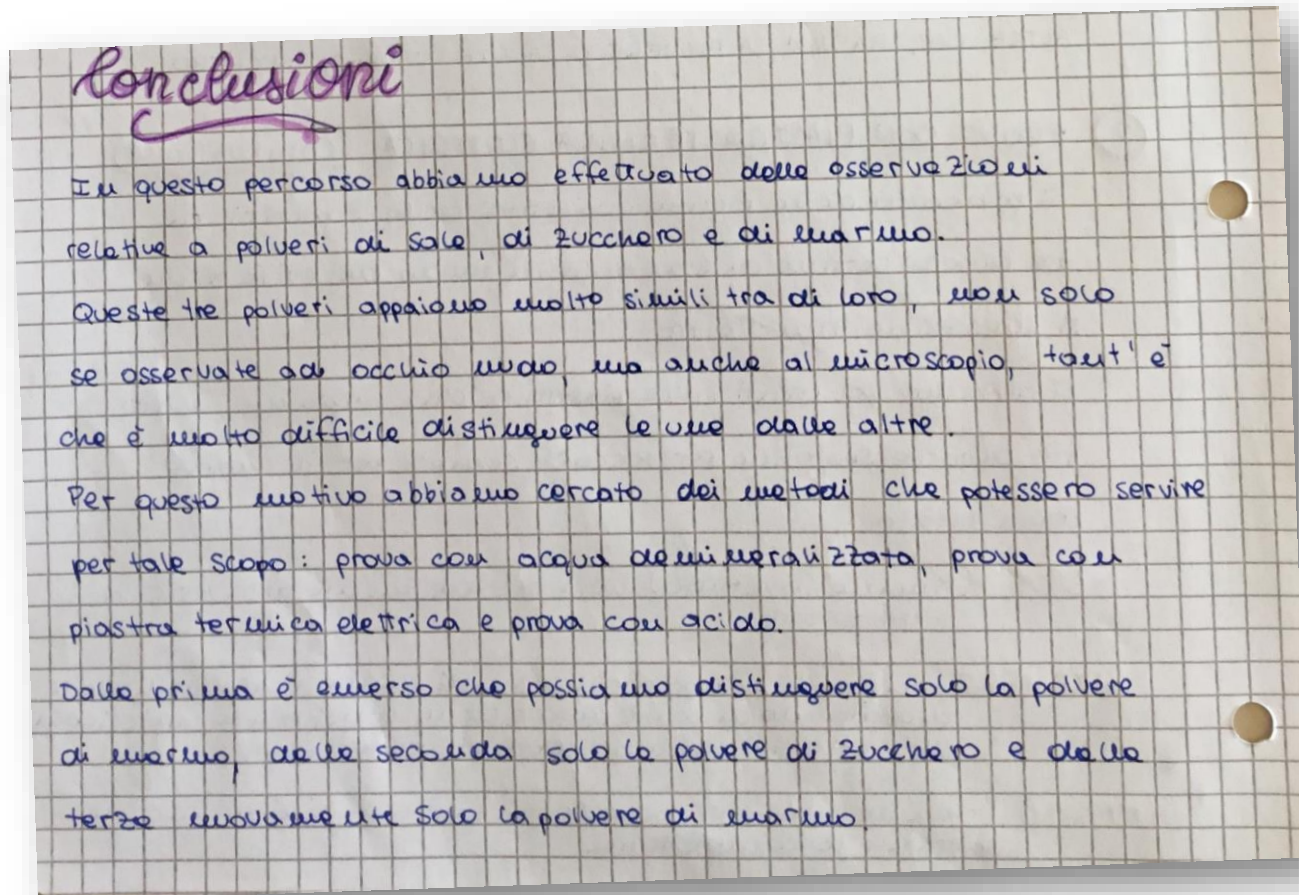 Conclusioni
In questo percorso abbiamo effettuato delle osservazioni
relative a polveri di sale, di zucchero e di marmo.
Queste tre polveri appaiono molto simili tra di loro, non solo
se osservate ad occhio nudo, ma anche al microscopio, tant'è
che è molto difficile distinguere le une dalle altre.
Per questo motivo abbiamo cercato dei metodi che potessero servire
per tale scopo: prova con acqua demineralizzata, prova con
piastra termica elettrica e prova con acido.
Dalla prima è emerso che possiamo distinguere solo la polvere
di marmo, dalla seconda solo la polvere di zucchero e dalla
terza nuovamente solo la polvere di marmo.